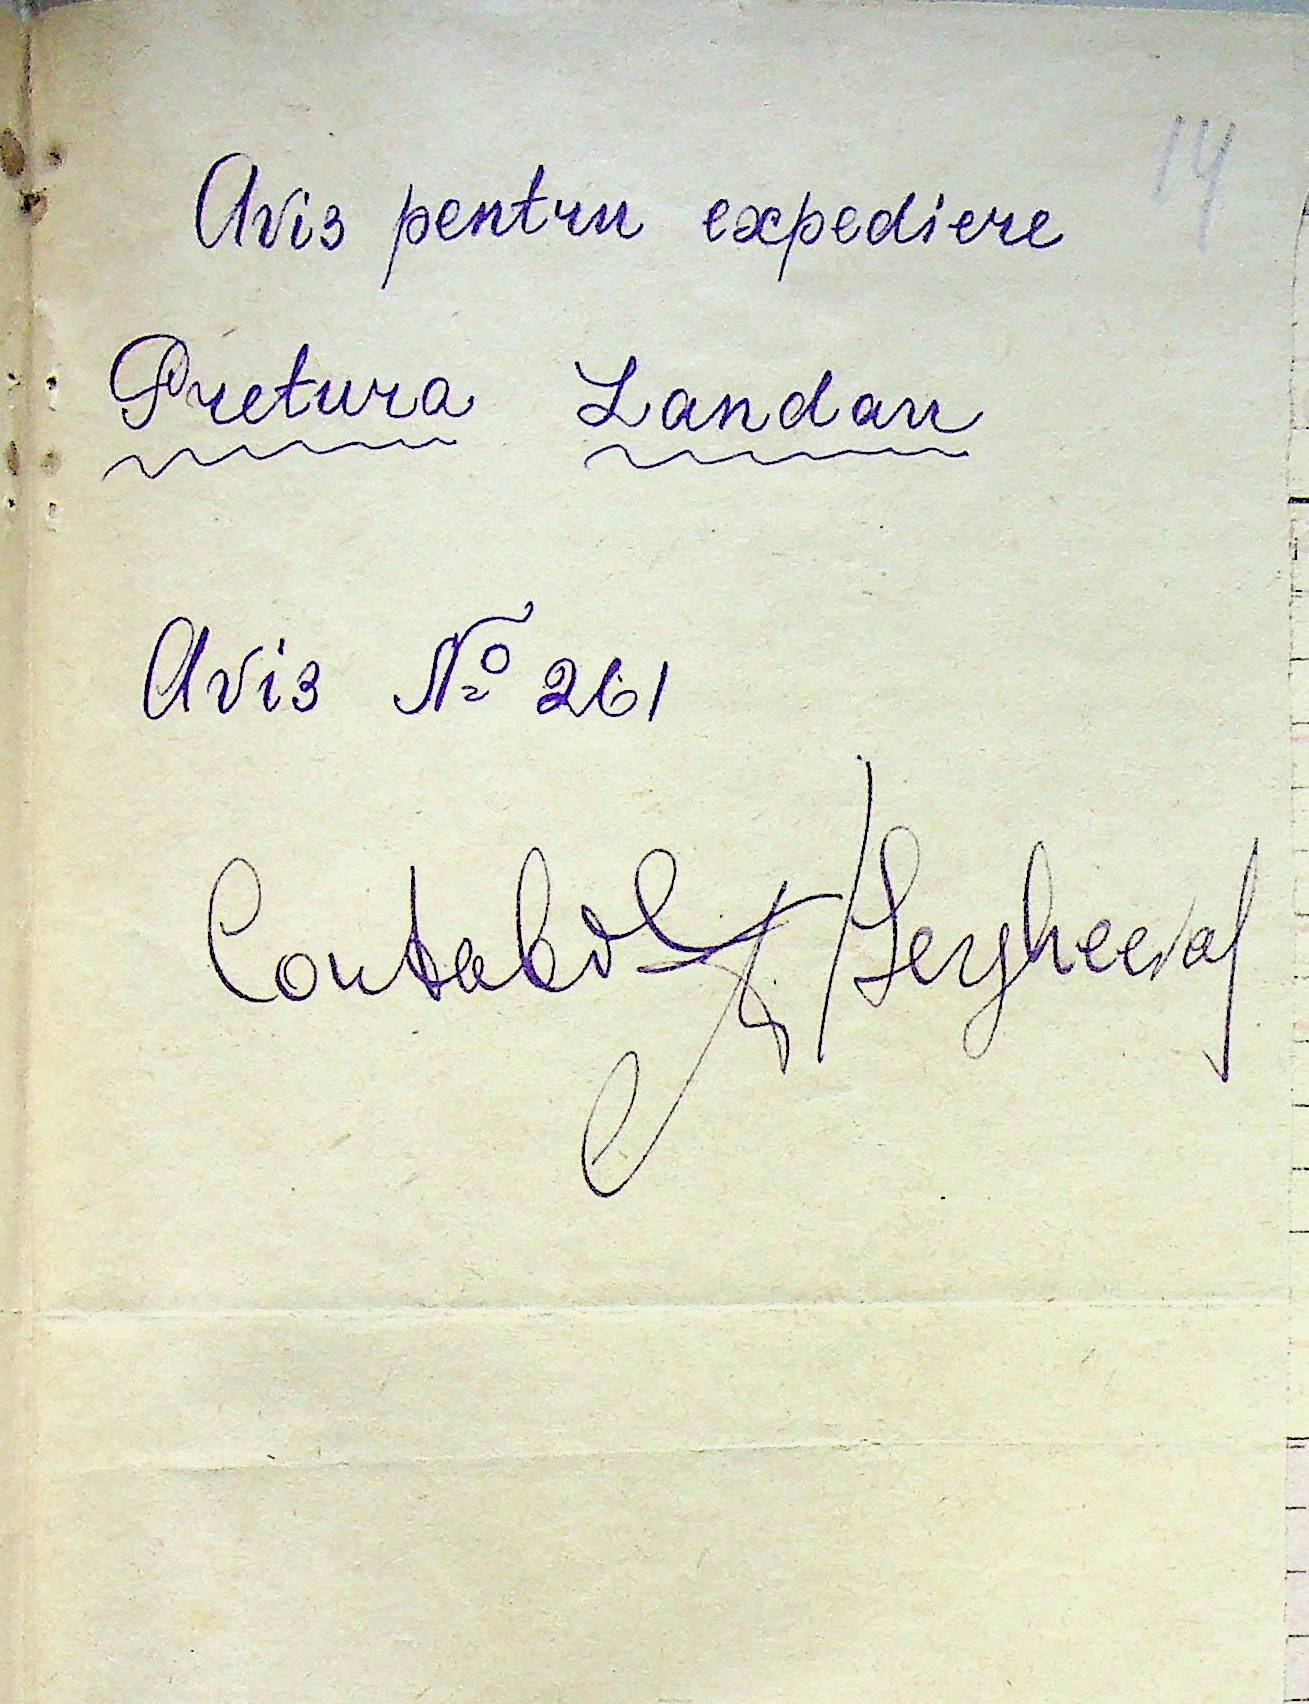 14
Avis pentru expediere
Pretura Landau
Avis № 261
Contabil /Sergheeva/